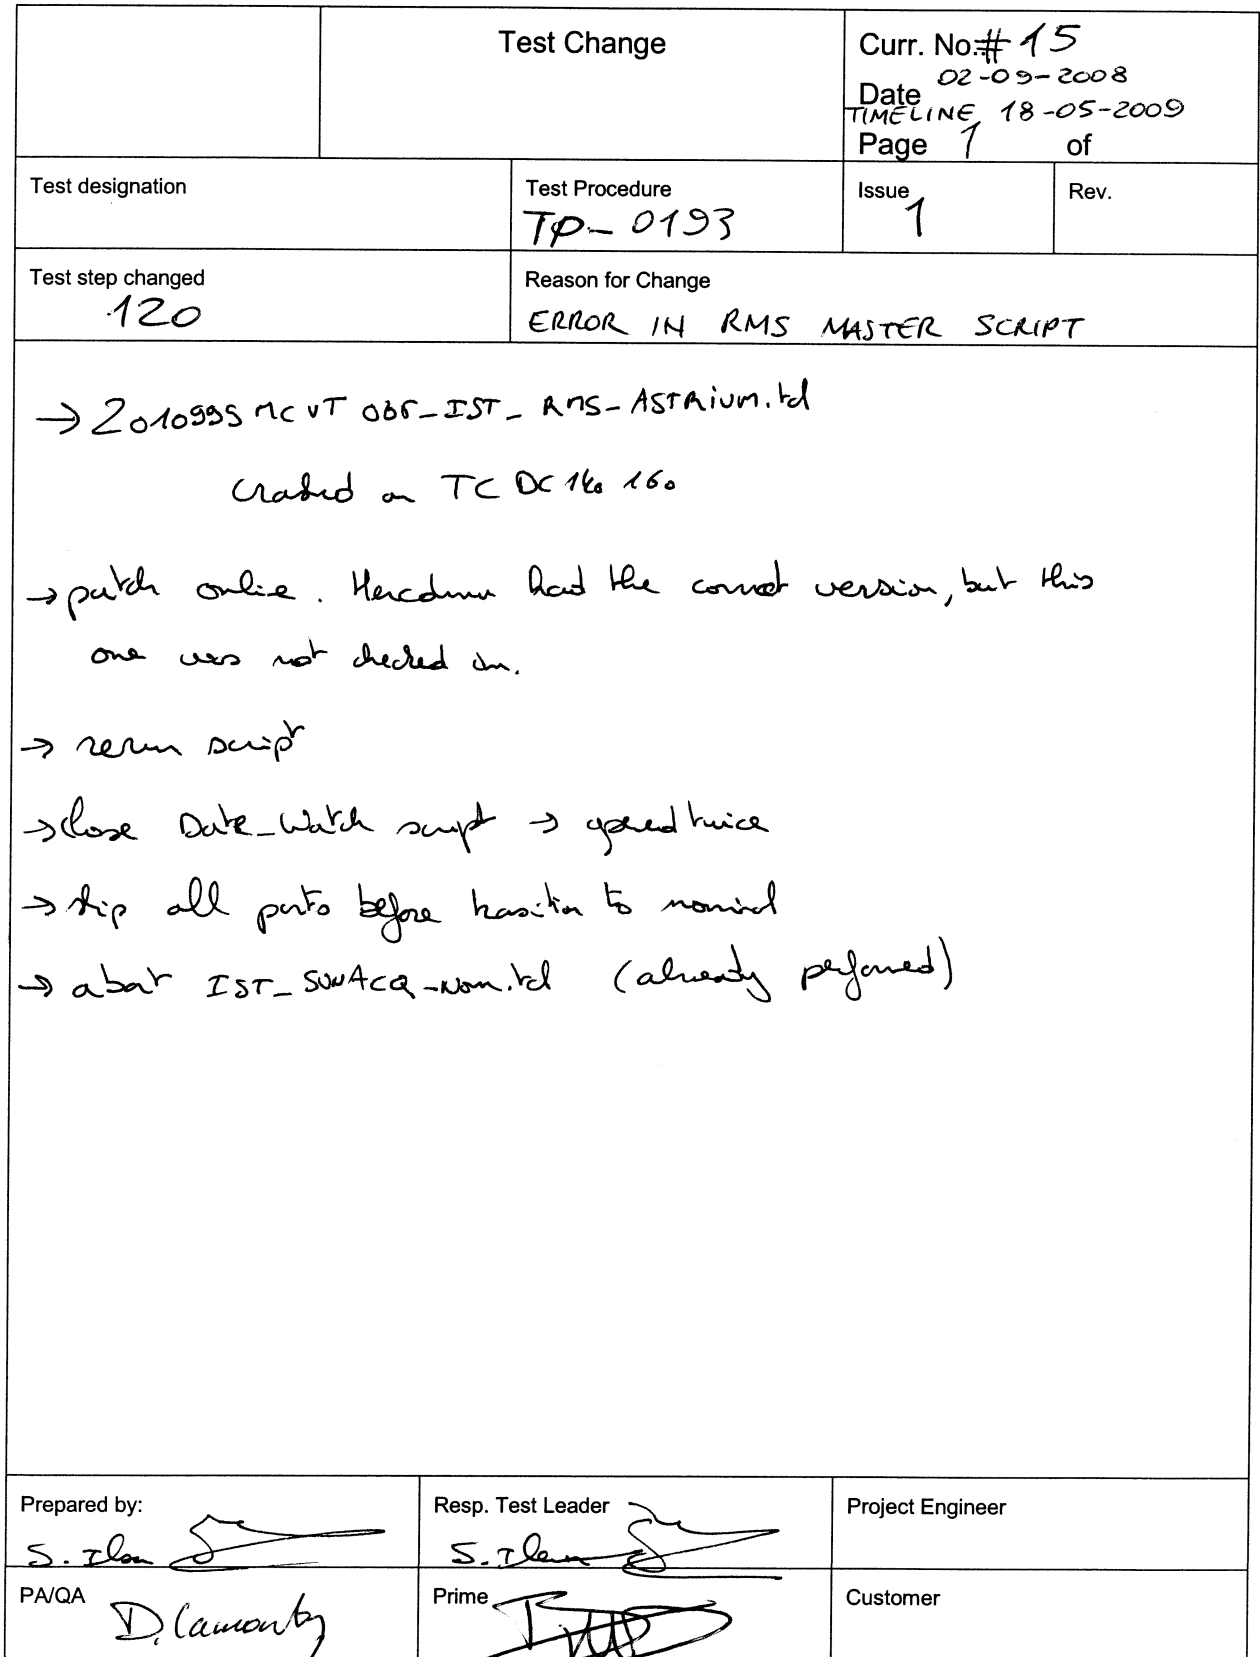 Test Change
Curr. No.: # 15
02-09-2008
Date
TIMELINE 18-05-2009
Page 1 of
Test designation
Test Procedure
TP-0193
Issue
1
Rev.
Test step changed
120
Reason for Change
ERROR IN RMS MASTER SCRIPT
→ Z010999S MCVT OBF_IST_RMS_ASTRIUM.tcl
Crashed on TC DC
→ patch online. had the correct version, but this
one was not checked in.
→ rerun script
→ close Date_Watch script → opened twice
→ skip all parts before transition to nominal
→ abort IST_SUNACQ_Nom.tcl (already performed)
Prepared by:
S.
Resp. Test Leader
S.
Project Engineer
PA/QA
D.
Prime
Customer